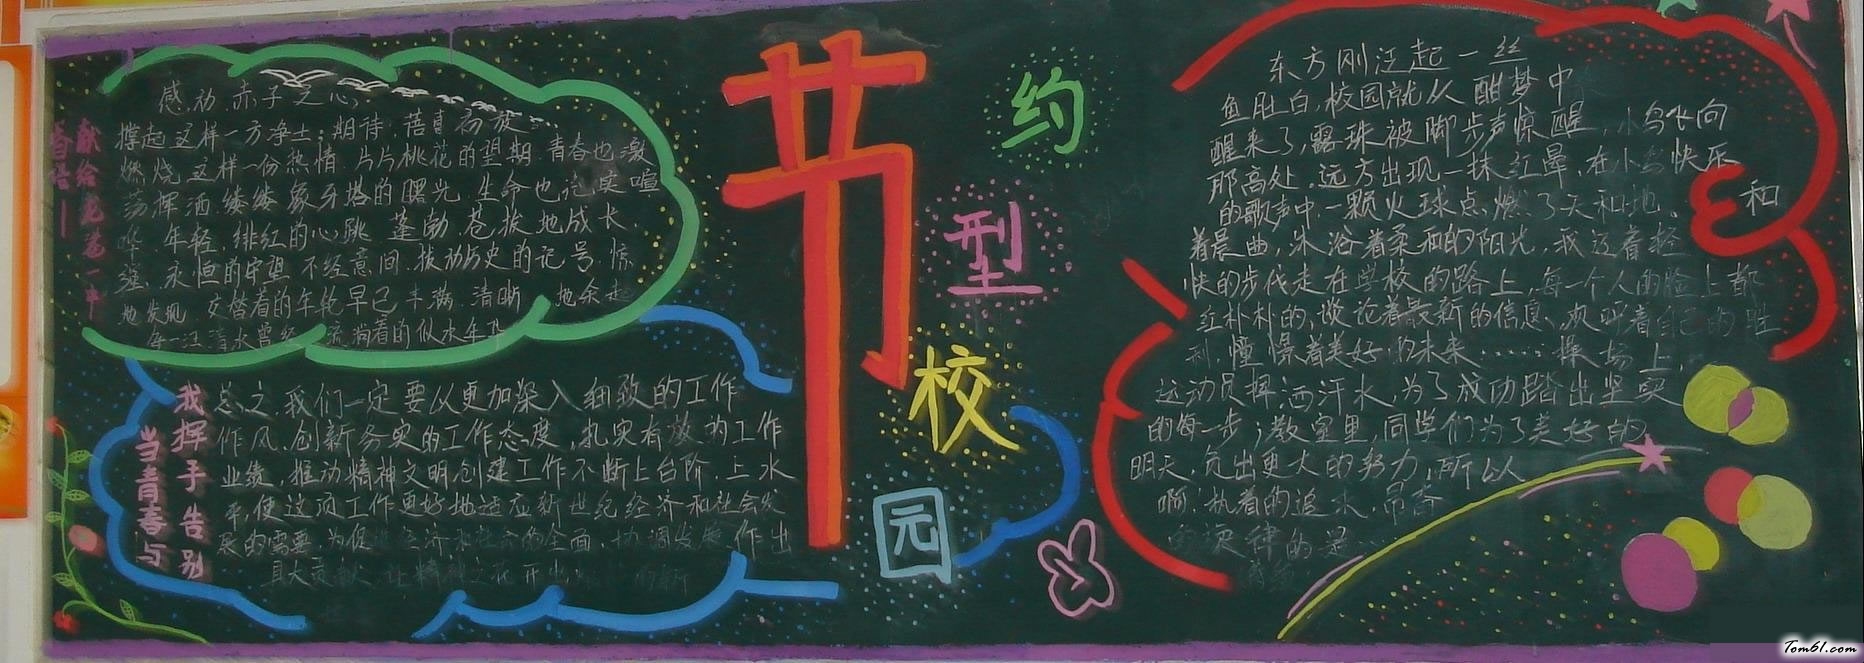 节
约
型
校
园
献给龙巷一中
感动赤子之心,
撑起这样一方净土;期待,蓓蕾初放
燃烧这样一份热情 片片桃花的望期 青春也激
荡 挥洒 缕缕象牙塔的曙光 生命也
哗 年轻 绯红的心跳 蓬勃 苍拔地成长
永恒的守望 不经意间 拔动历史的记号 惊
地发现 交替着的年轮早已丰满 清晰 地余起
每一汪清水曾经 流淌着的似水年华
我挥手告别
当青春与
总之,我们一定要从更加深入细致的工作
作风,创新务实的工作态度,扎实有效的工作
业绩,推动精神文明创建工作不断上台阶,上水
平,使这项工作更好地适应新世纪经济和社会发
展的需要,为促进经济和社会的全面,协调发展作出
东方刚泛起一丝
鱼肚白,校园就从酣梦中
醒来了,露珠被脚步声惊醒,小鸟飞向
那高处,远方出现一抹红晕,在小鸟快乐
的歌声中,一颗火球点燃了天和地。 和
着晨曲,沐浴着柔和的阳光,我迈着轻
快的步伐走在学校的路上,每一个人的脸上都
红朴朴的,谈论着最新的信息,欢呼着自己的胜
利,憧憬着美好的未来……操场上
运动员挥洒汗水,为了成功踏出坚实
的每一步;教室里,同学们为了美好的
明天,负出更大的努力,所以
啊!执着的追
旋律的是…
Tom61.com